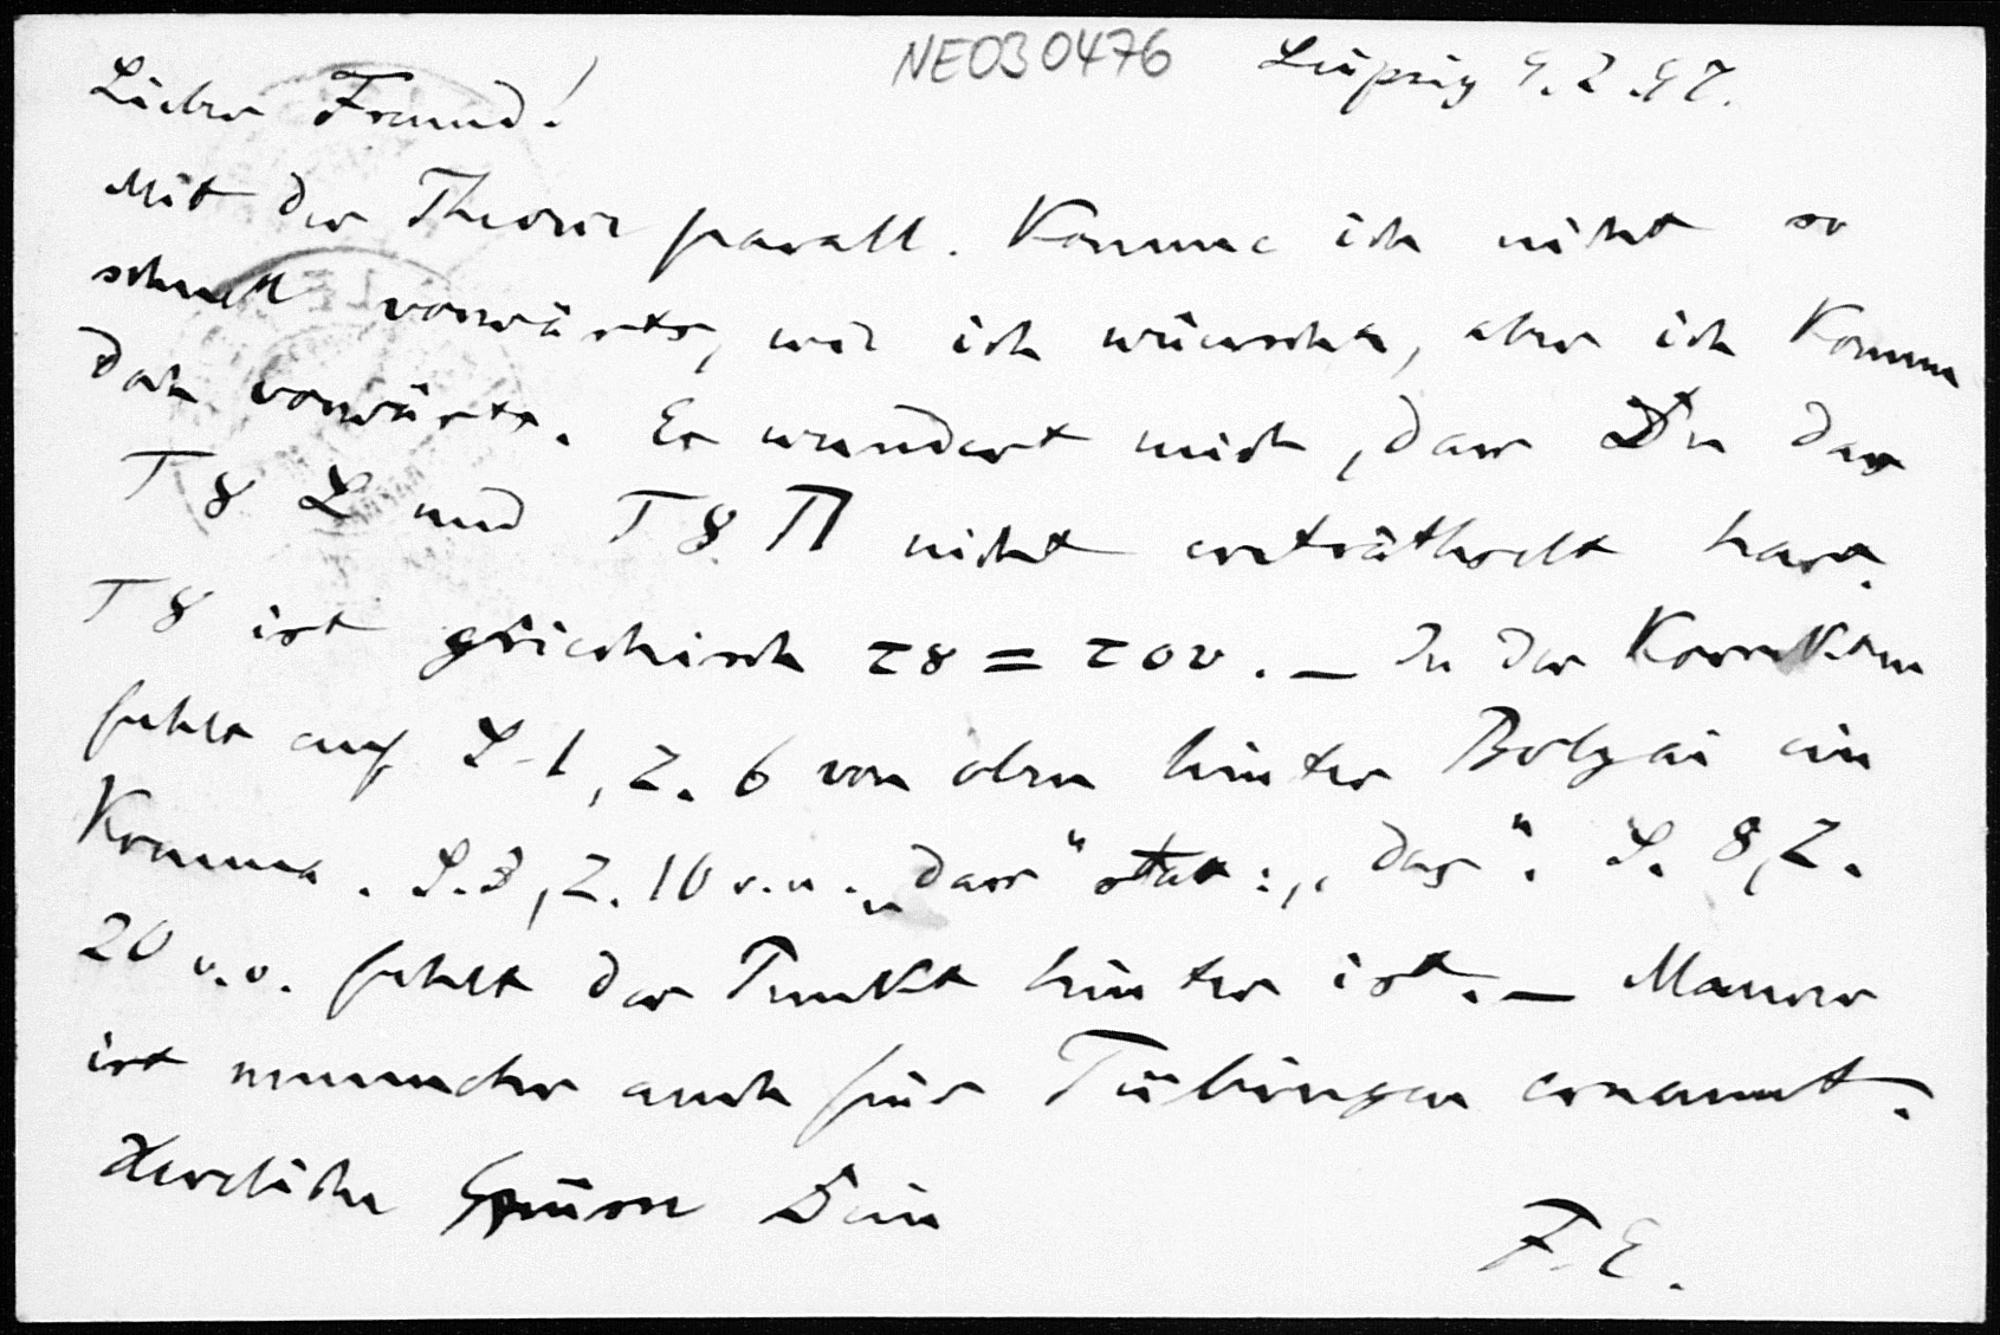 NE030476 Leipzig 9.2.97.
Lieber Freund!
Mit der Theorie parall. Komme ich nicht so
schnell vorwärts, wie ich wünschte, aber ich komme
doch vorwärts. Es wundert mich, dass Du das
T8 L und T8 Π nicht enträthselt hast.
T8 ist griechisch τ8 = τ0υ. — In der Korrektur
fehlt auf S. 1, Z. 6 von oben hinter Bolyai ein
Komma. S. 3, Z. 10 v.u. „dass" statt: „das". S. 8, Z.
20 v.o. fehlt der Punkt hinter ist. — Maurer
ist nunmehr auch für Tübingen ernannt.
Herzliche Grüsse Dein
F. E.